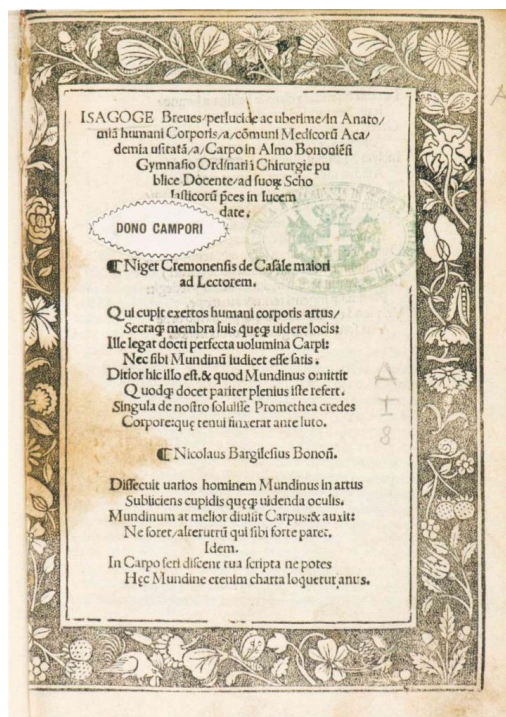 ISAGOGE Breues/perlucide ac uberime/in Anato/
miā humani Corporis/a/cōmuni Medicorū Aca/
demia usitatā/a/Carpo in Almo Bononiēsi
Gymnasio Ordinariā Chirurgie pu
blice Docente/ad suoꝝ Scho
lasticorū p̄ces in lucem
date.
DONO CAMPORI
¶ Niger Cremonensis de Casale maiori
ad Lectorem.
Qui cupit exertos humani corporis artus/
Sectaq; membra suis quęq; uidere locis:
Ille legat docti perfecta uolumina Carpi:
Nec sibi Mundinū iudicet esse satis.
Ditior hic illo est.& quod Mundinus omittit
Quodq; docet pariter plenius iste refert.
Singula de nostro soluisse Promethea credes
Corpore:quę tenui finxerat ante luto.
¶ Nicolaus Bargilesius Bonoñ.
Dissecuit uarios hominem Mundinus in artus
Subiiciens cupidis quęq; uidenda oculis.
Mundinum at melior diuisit Carpus:& auxit:
Ne foret/alterutrū qui sibi forte paret.
Idem.
In Carpo seri discent tua scripta nepotes
Hęc Mundine etenim charta loquetur anus.
A
I
8